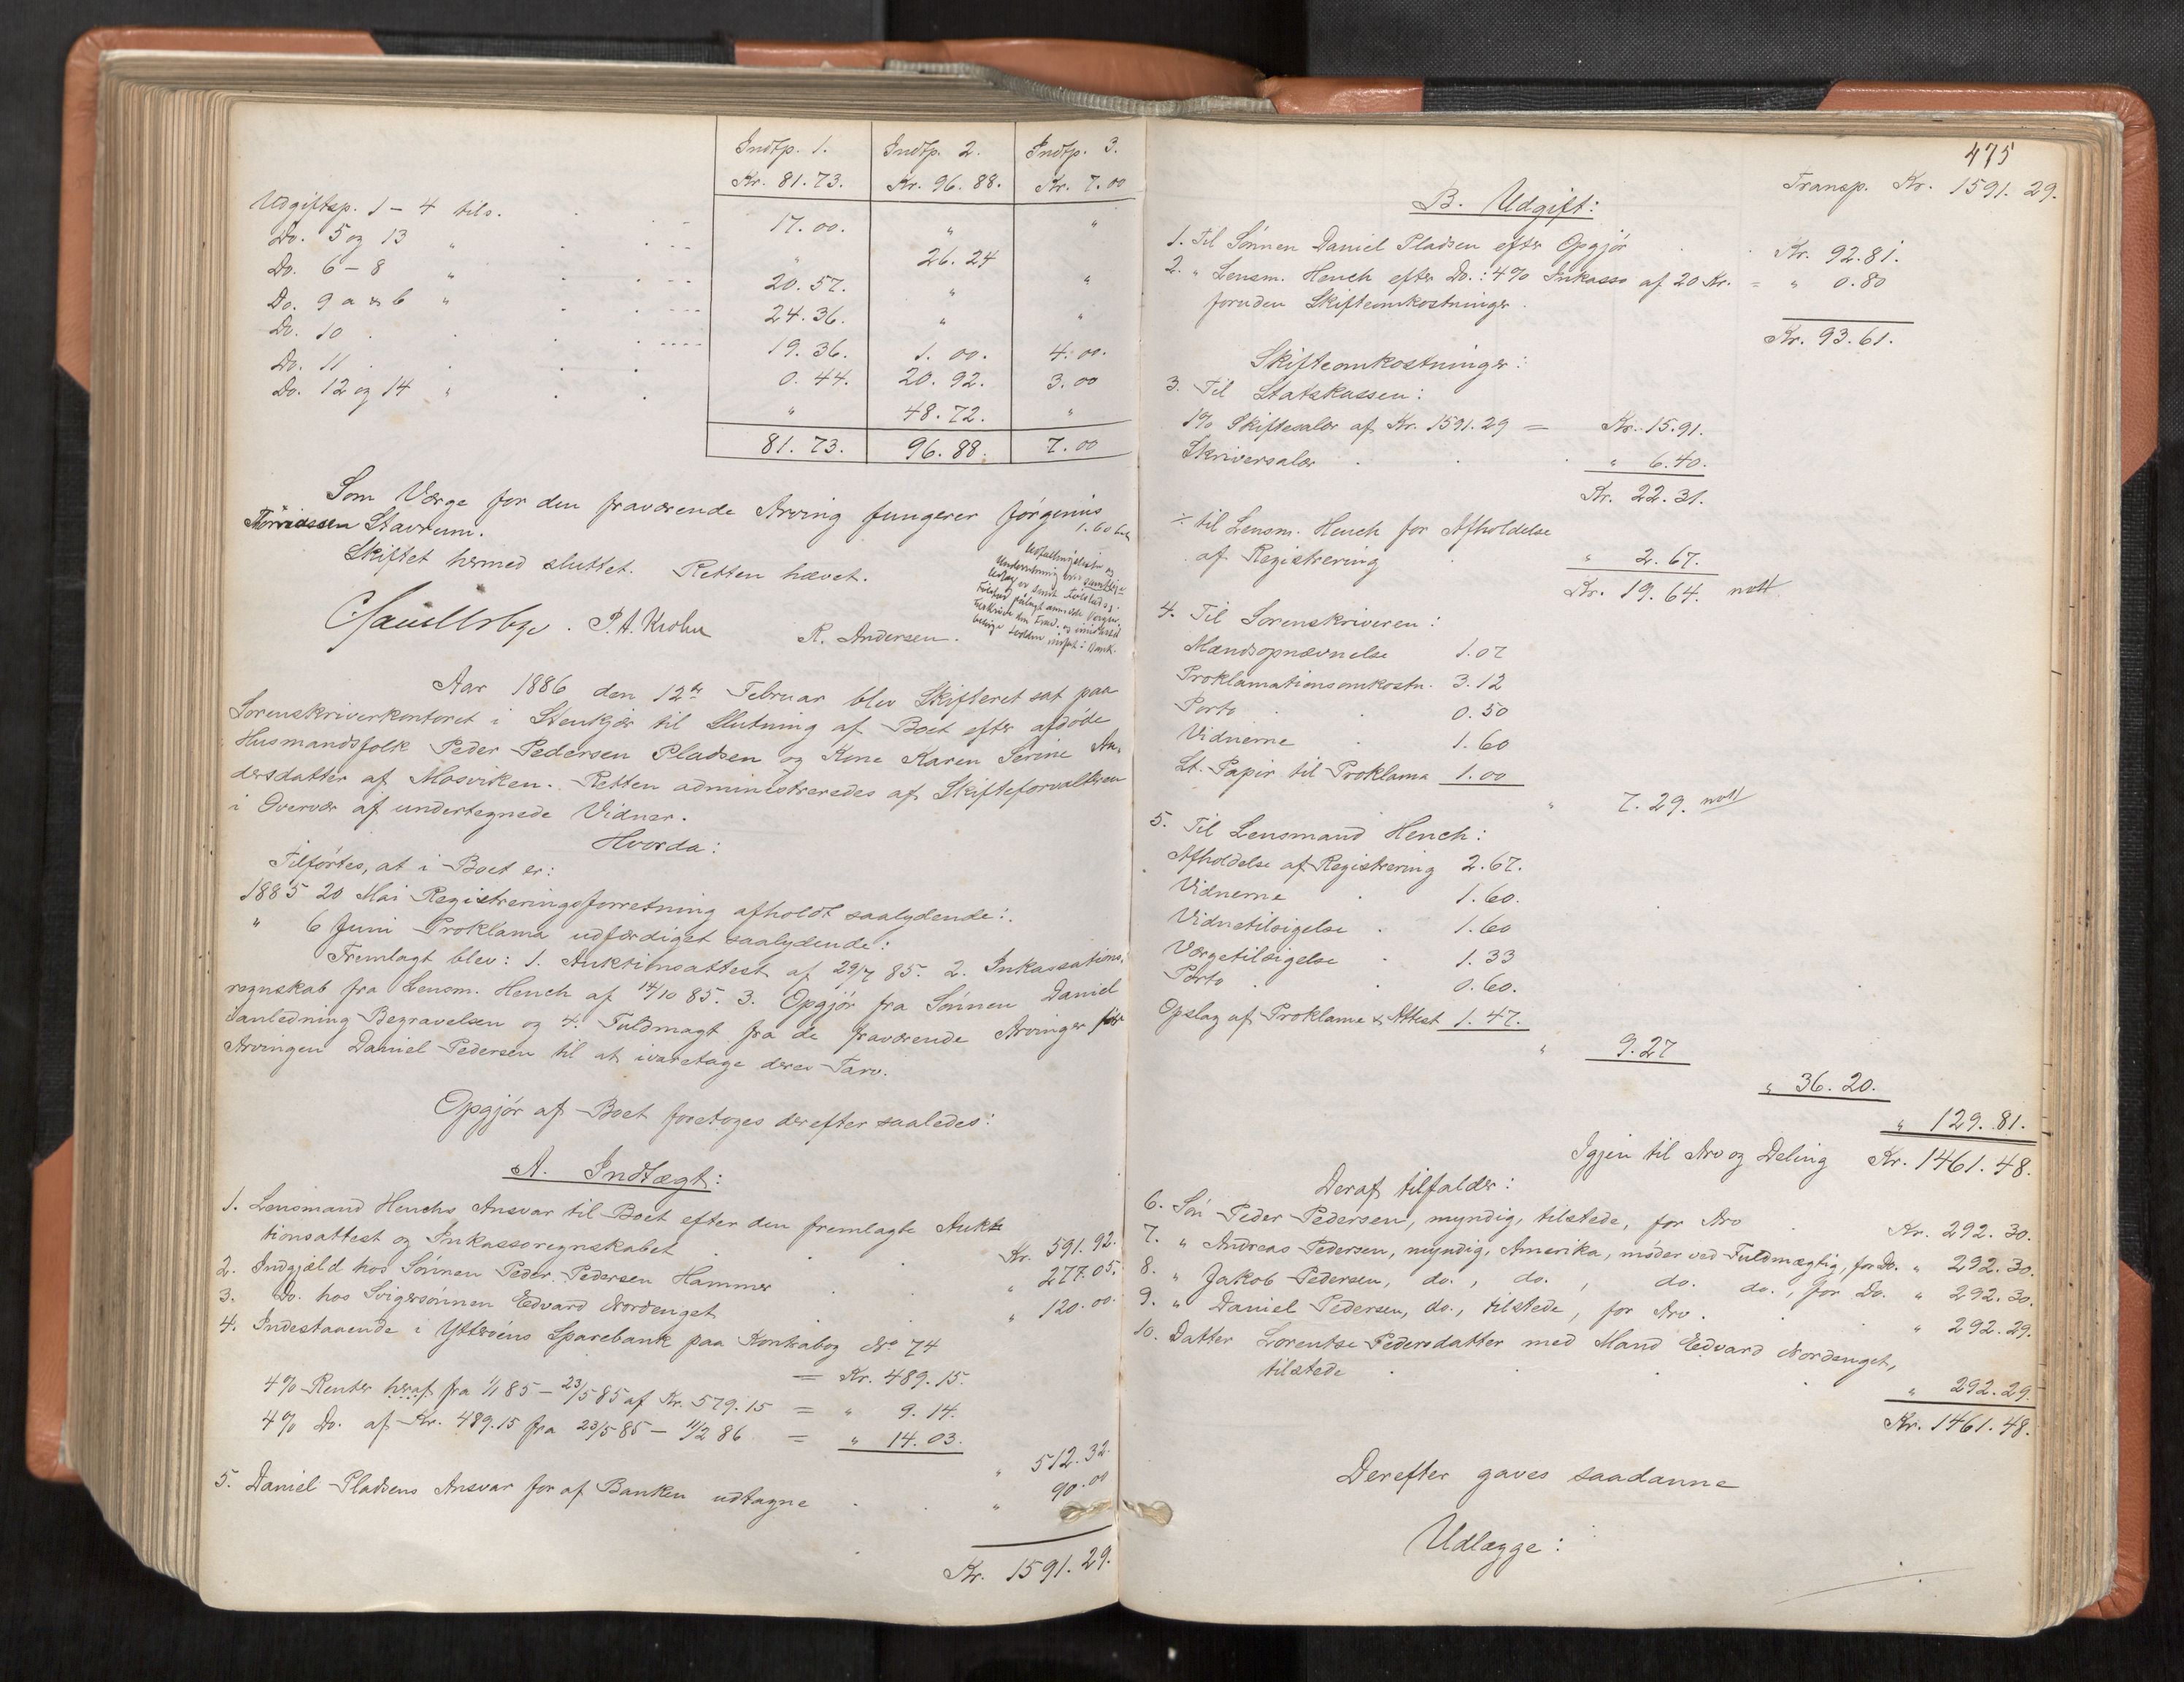 Indtp. 1. Indtp. 2. Indtp. 3.
Kr. 81.73. Kr. 96.88. Kr. 7.00
Udgiftsp. 1 - 4 tils. 17.00. " "
Do. 5 og 13 " " 26.24 "
Do. 6 - 8 " 20.57. " "
Do. 9 a & b " 24.36. " "
Do. 10 19.36. 1.00. 4.00.
Do. 11 0.44. 20.92. 3.00
Do. 12 og 14 " " 48.72. "
81.73. 96.88. 7.00
Som Værge for den fraværende Arving fungerer Jørginius
Stavrum.
Skiftet hermed sluttet. Retten hævet.
P. A. Krohn R. Andersen.
Aar 1886 den 12te Februar blev Skifteret sat paa
Sorenskriverkontoret i Stenkjær til Slutning af Boet efter afdøde
Husmandsfolk Peder Pedersen Pladsen og Kone Karen Serine An-
dersdatter af Mosviken. Retten administreredes af Skifteforvalteren
i Overvær af undertegnede Vidner.
Hvorda:
Tilførtes, at i Boet er:
1885 20 Mai Registreringsforretning afholdt saalydende:
" 6 Juni Proklama udfærdiget saalydende:
Fremlagt blev: 1. Auktionsattest af 29/7 85. 2. Inkassations-
regnskab fra Lensm. Hench af 14/10 85. 3. Opgjør fra Sønnen Daniel
ianledning Begravelsen og 4. Fuldmagt fra de fraværende Arvinger for
Arvingen Daniel Pedersen til at ivaretage deres Tarv.
Opgjør af Boet foretoges derefter saaledes:
A. Indtægt:
1. Lensmand Henchs Ansvar til Boet efter den fremlagte Auk-
tionsattest og Inkassoregnskabet Kr. 591.92.
2. Indgjæld hos Sønnen Peder Pedersen Hammer " 277.05.
3. Do. hos Svigersønnen Edvard Nordenget " 120.00.
4. Indestaaende i Ytterøens Sparebank paa Kontrabog No 74
= Kr. 489.15.
4% Renter heraf fra 1/1 85 - 23/5 85 af Kr. 579.15 = " 9.14.
4% Do. af Kr. 489.15 fra 23/5 85 - 11/2 86 = " 14.03.
" 512.32.
5. Daniel Pladsens Ansvar for af Banken udtagne " 90.00
Kr. 1591.29.
475
Transp. Kr. 1591.29.
B. Udgift:
1. Til Sønnen Daniel Pladsen efter Opgjør Kr. 92.81.
2. " Lensm. Hench efter Do.: 4% Inkasso af 20 Kr. = " 0.80
foruden Skifteomkostninger.
Kr. 93.61.
Skifteomkostninger:
3. Til Statskassen:
1% Skiftesalær af Kr. 1591.29 = Kr. 15.91.
Skriversalær " 6.40.
Kr. 22.31.
÷ til Lensm. Hench for Afholdelse
af Registrering " 2.67.
Kr. 19.64. nott
4. Til Sorenskriveren:
Mændsopnævnelse 1.07
Proklamationsomkostn. 3.12
Porto 0.50
Vidnerne 1.60
St. Papir til Proklama 1.00
" 7.29. nott
5. Til Lensmand Hench:
Afholdelse af Registrering 2.67.
Vidnerne 1.60.
Vidnetilsigelse 1.60
Værgetilsigelse 1.33
Porto 0.60.
Opslag af Proklama & Attest 1.47.
" 9.27
" 36.20.
" 129.81.
Igjen til Arv og Deling Kr. 1461.48.
Deraf tilfalder:
6. Søn Peder Pedersen, myndig, tilstede, for Arv Kr. 292.30.
7. " Andreas Pedersen, myndig, Amerika, møder ved Fuldmægtig, for Do. " 292.30.
8. " Jakob Pedersen, do., do., do. do., for Do. " 292.30.
9. " Daniel Pedersen, do., tilstede, for Arv. " 292.29.
10. Datter Lorentse Pedersdatter med Mand Edvard Nordenget,
tilstede " 292.29.
Kr. 1461.48.
Derefter gaves saadanne
Udlægge: